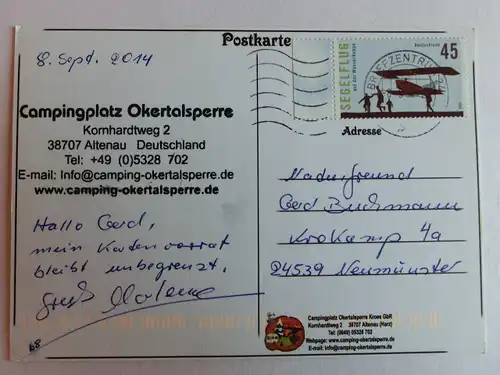 8. Sept. 2014
Postkarte
SEGELFLUG
auf der Wasserkuppe
Deutschland
45
BRIEFZENTRUM
Campingplatz Okertalsperre
Kornhardtweg 2
38707 Altenau Deutschland
Tel: +49 (0)5328 702
E-mail: Info@camping-okertalsperre.de
www.camping-okertalsperre.de
Hallo Gerd,
mein Kartenvorrat
bleibt unbegrenzt.
Gruß
68
Adresse
Naturfreund
Gerd Buchmann
Krokamp 4a
24539 Neumünster
Campingplatz Okertalsperre Kroes GbR
Kornhardtweg 2 38707 Altenau (Harz)
Tel: (0049) 05328 702
Webpage: www.camping-okertalsperre.de
E-mail: info@camping-okertalsperre.de